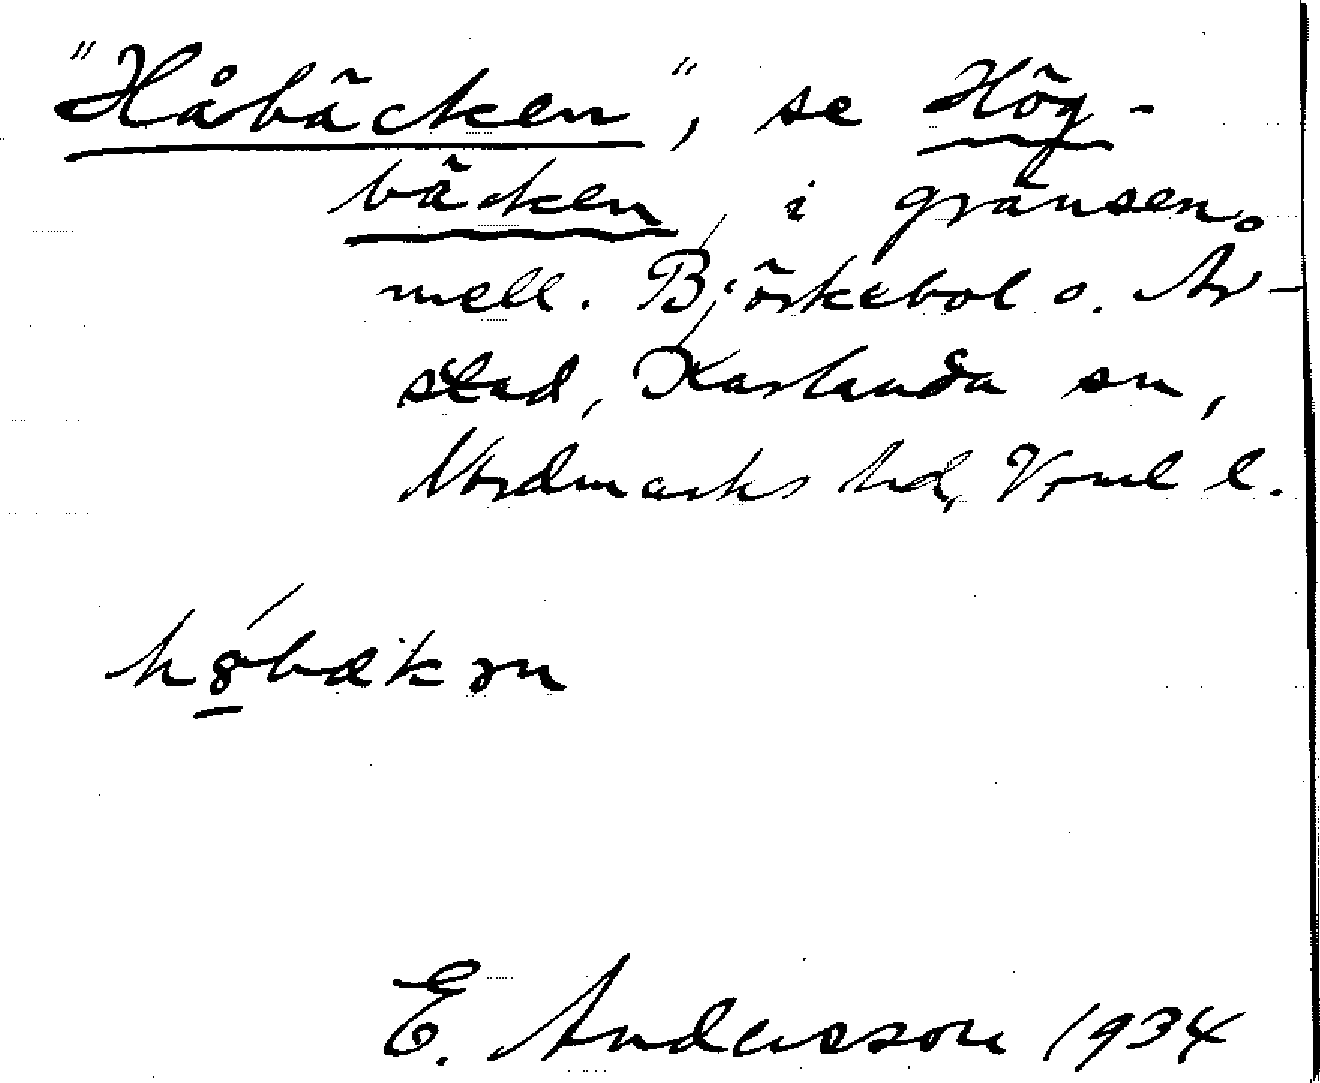 "Håbäcken", se Hög-
bäcken, i gränsen
mell. Björkebol o. År-
stad, Karlanda sn,
Nordmarks hd, Vrml l.
E. Andersson 1934